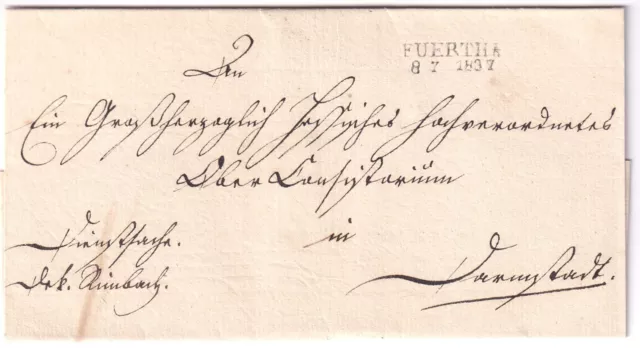 FUERTH
8 7 1837
An
Ein Großherzoglich Hessisches Hochverordnetes
Ober Consistorium
in
Darmstadt.
Dienstsache.
Dek. Rimbach.